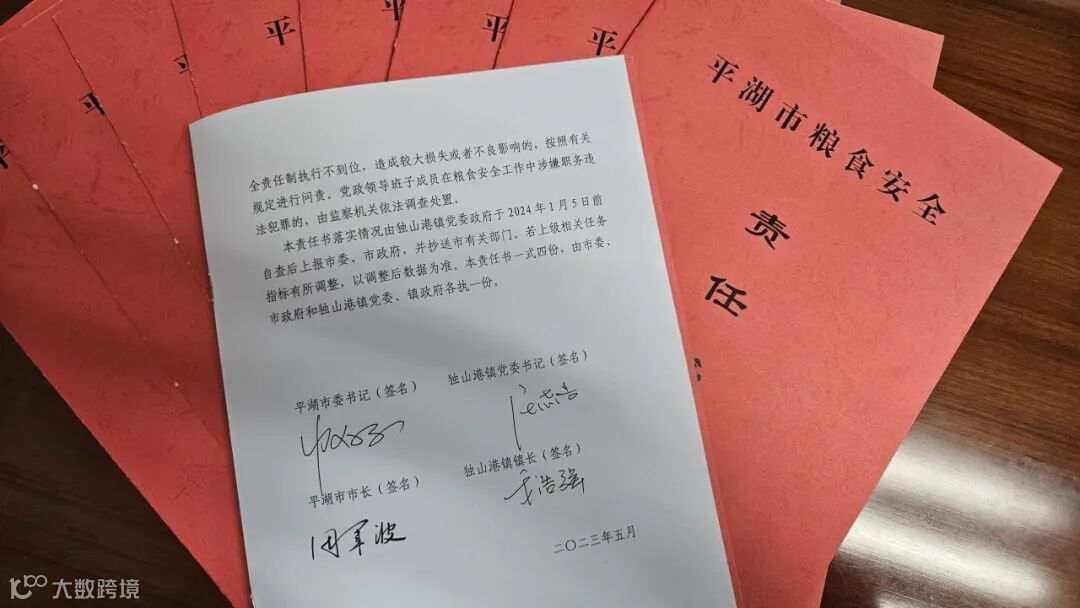 平
平
平
平
平
平
平湖市粮食安全
责
任
全责任制执行不到位，造成较大损失或者不良影响的，按照有关
规定进行问责。党政领导班子成员在粮食安全工作中涉嫌职务违
法犯罪的，由监察机关依法调查处置。
本责任书落实情况由独山港镇党委政府于2024年1月5日前
自查后上报市委、市政府，并抄送市有关部门。若上级相关任务
指标有所调整，以调整后数据为准。本责任书一式四份，由市委、
市政府和独山港镇党委、镇政府各执一份。
平湖市委书记（签名）
独山港镇党委书记（签名）
平湖市市长（签名）
独山港镇镇长（签名）
周军波
浩强
二〇二三年五月
大数跨境